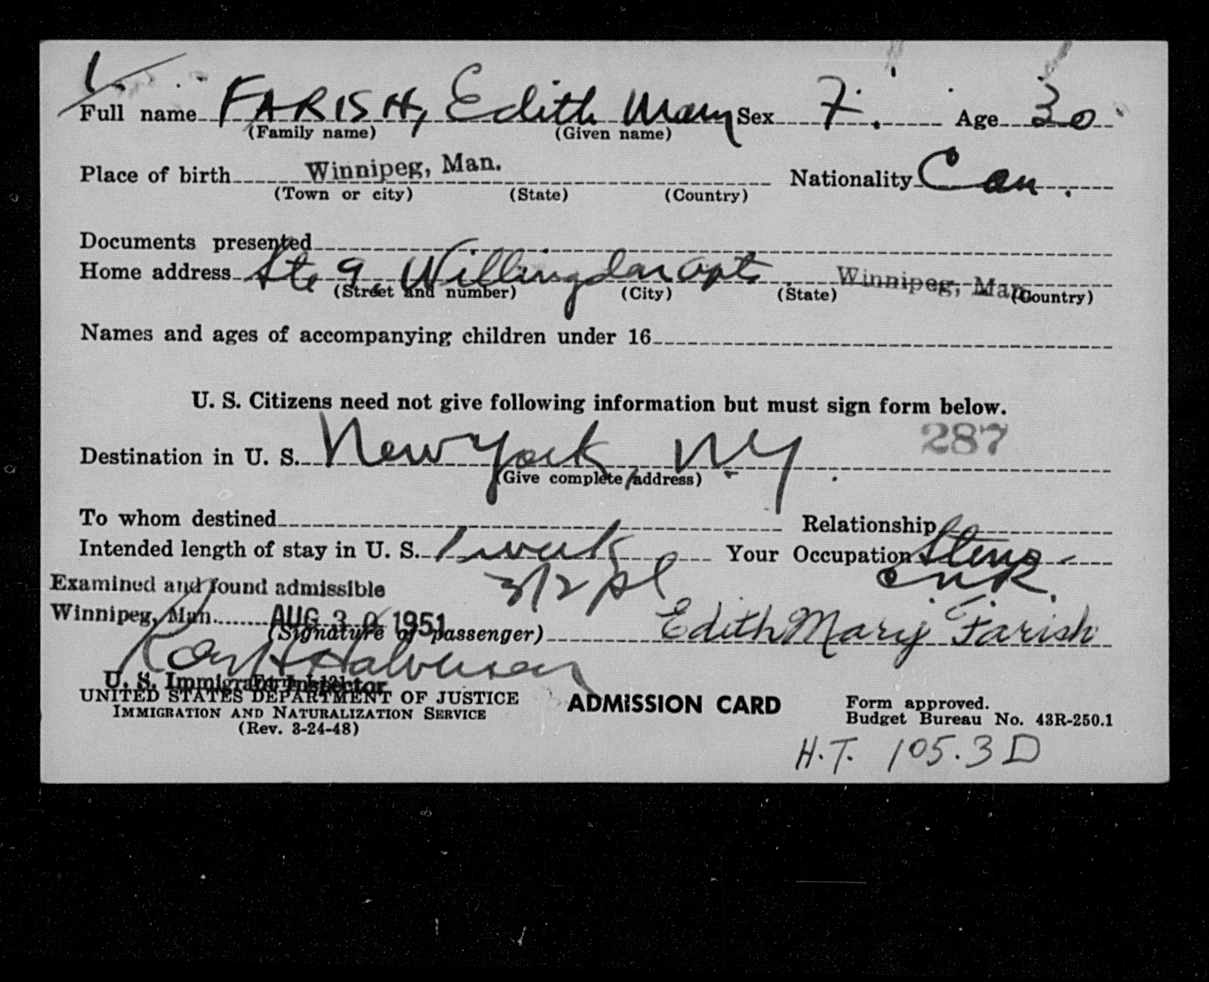 Full name FARISH, Edith Mary Sex F. Age 30
(Family name) (Given name)
Place of birth Winnipeg, Man. Nationality Can.
(Town or city) (State) (Country)
Documents presented
Home address Ste 9, Willingdon Apts Winnipeg, Man.
(Street and number) (City) (State) (Country)
Names and ages of accompanying children under 16
U. S. Citizens need not give following information but must sign form below.
287
Destination in U. S. New York, NY.
(Give complete address)
To whom destined Relationship
Intended length of stay in U. S. 1 week Your Occupation Steno
CNR.
Examined and found admissible 3/2 pl
Winnipeg, Man. AUG 30 1951
(Signature of passenger) Edith Mary Farish
Halvorsen
U. S. Immigrant Inspector
UNITED STATES DEPARTMENT OF JUSTICE ADMISSION CARD Form approved.
IMMIGRATION AND NATURALIZATION SERVICE Budget Bureau No. 43R-250.1
(Rev. 3-24-48)
H.T. 105.3D